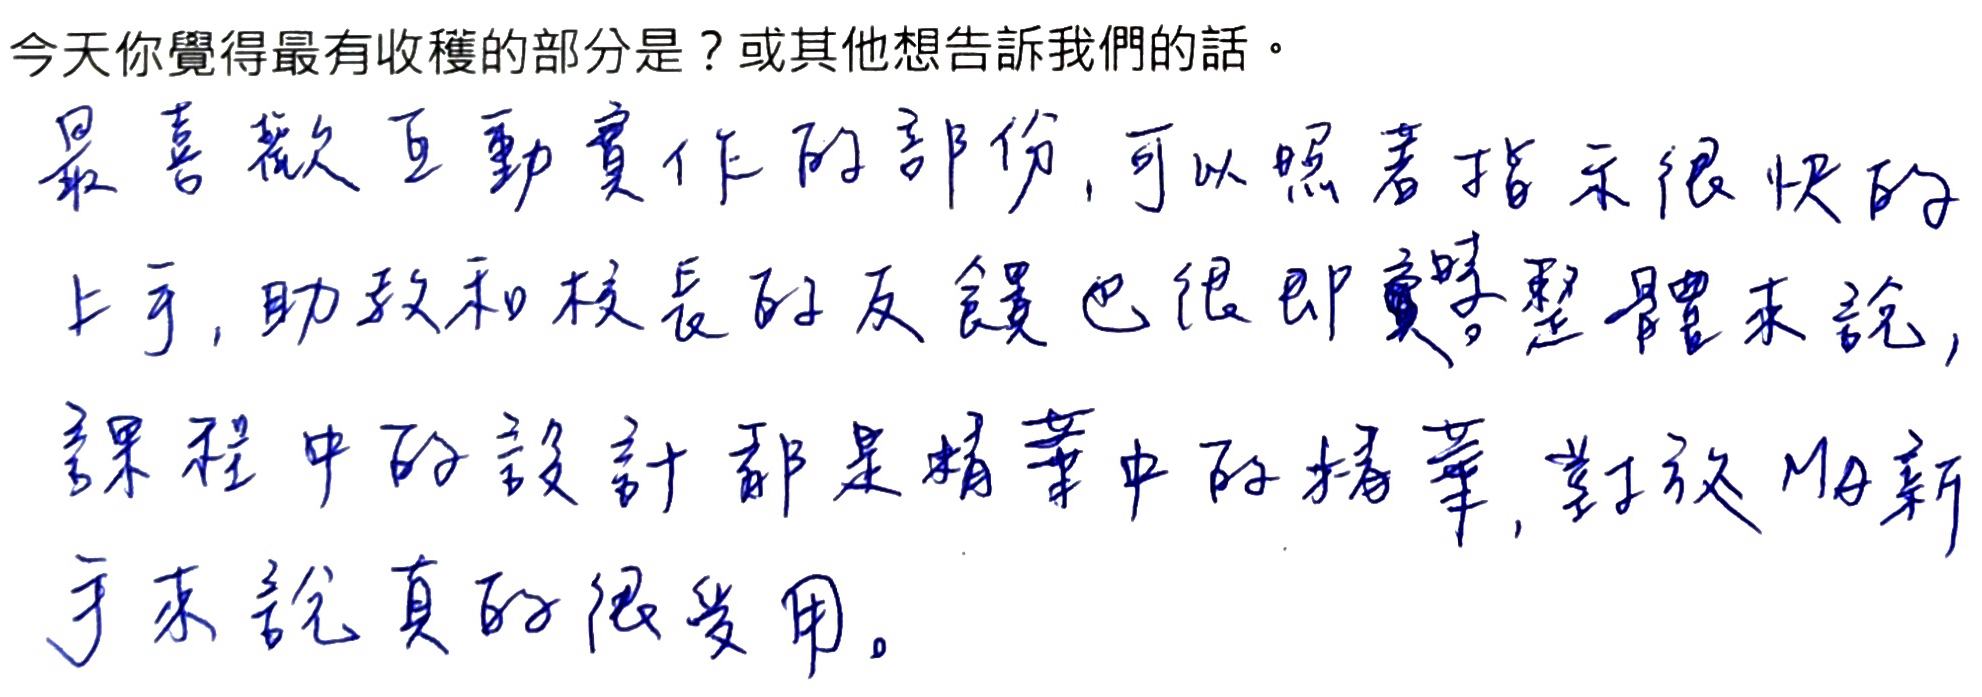 今天你覺得最有收穫的部分是？或其他想告訴我們的話。
最喜歡互動實作的部份,可以照著指示很快的
上手,助教和校長的反饋也很即時。整體來說,
課程中的設計都是精華中的精華,對於MA新
手來說真的很受用。